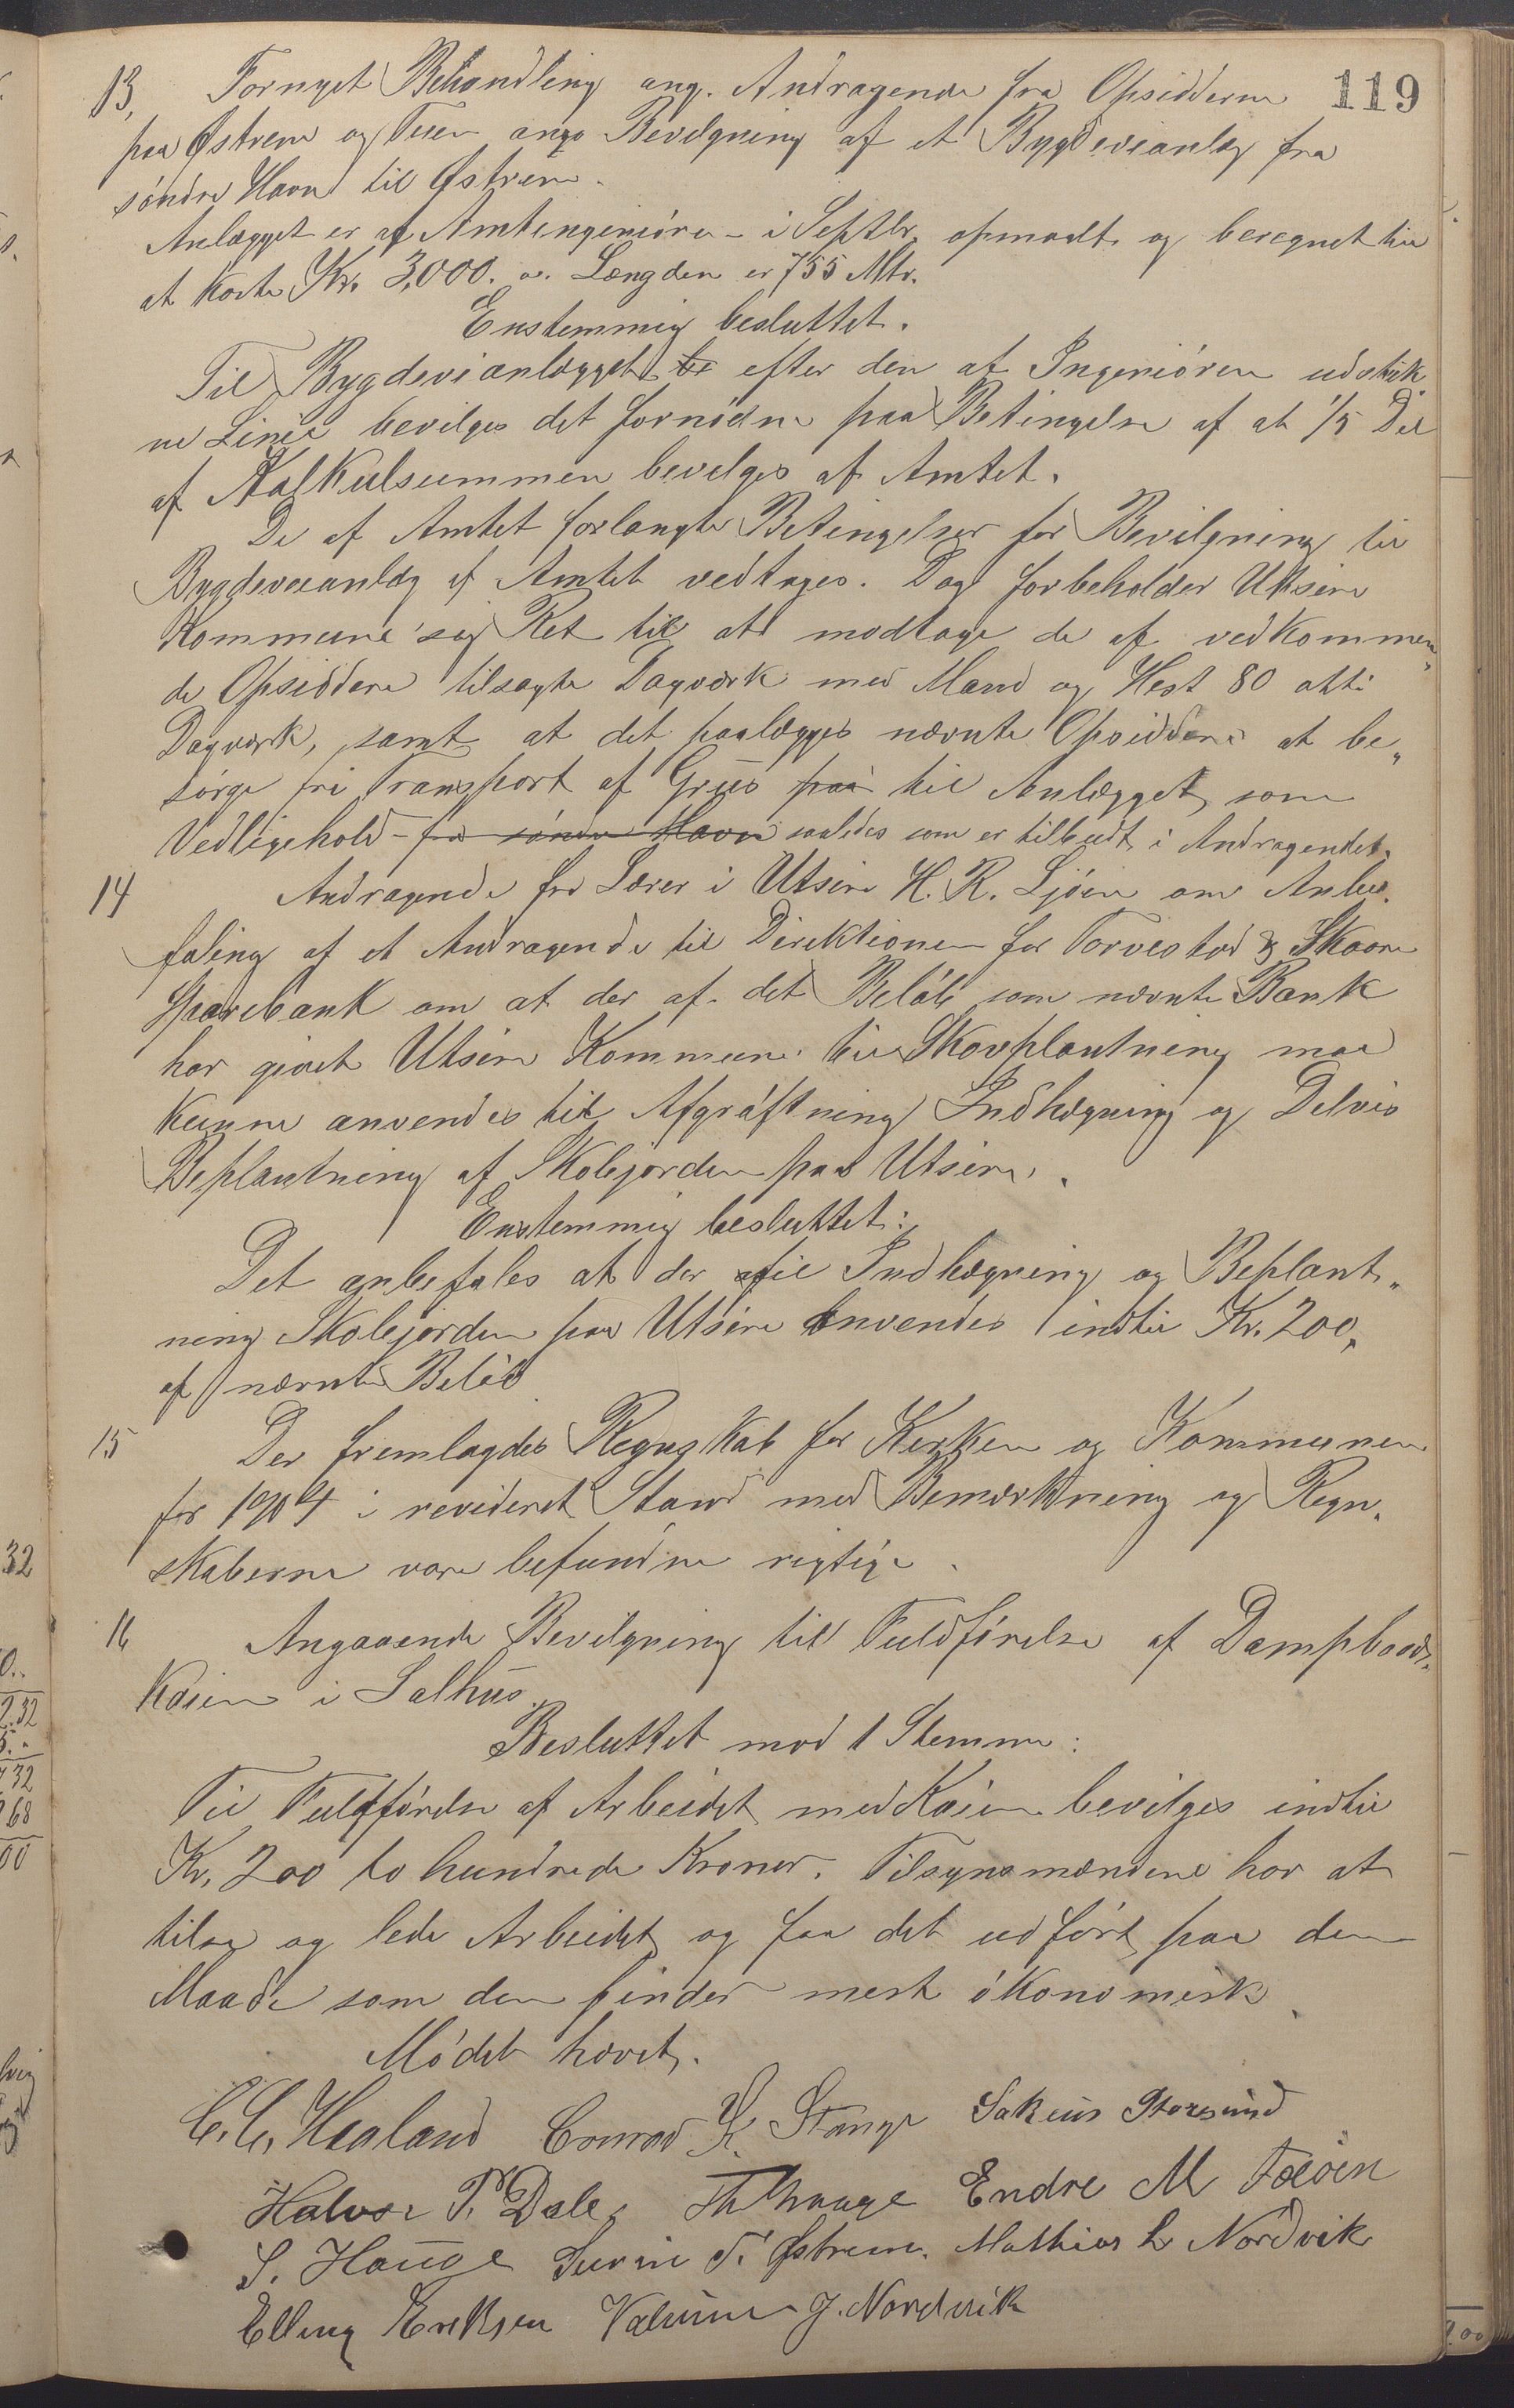 119
13, Fornyet Behandling ang. Andragende fra Opsidderne
paa Østrem og Tuen ang. Bevilgning af et Bygdeveianlæg fra
søndre Havn til Østrem.
Anlægget er af Amtsingeniøren i Septbr. opmaalt og beregnet til
at koste Kr. 3,000. Længden er 755 Mtr.
Enstemmig besluttet.
Til Bygdeveianlægget efter den af Ingeniøren udstik
ne Linie bevilges det fornødne paa Betingelse af at 1/5 Del
af Kalkulsummen bevilges af Amtet.
De af Amtet forlangte Betingelser for Bevilgning til
Bygdeveianlæg af Amtet vedtages. Dog forbeholder Utsire
Kommune sig Ret til at modtage de af vedkommen„
de Opsiddere tilsagte Dagværk med Mand og Hest 80 otti
Dagværk, samt at det paalægges nævnte Opsiddere at be„
sørge fri Transport af Grus paa til Anlægget som
Vedligehold fra søndre Havn saaledes som er tilbudt i Andragendet.
14 Andragende fra Lærer i Utsire H. R. Ljøen om Anbe„
faling af et Andragende til Direktionen for Torvestad & Skaare
Sparebank om at der af det Beløb som nævnte Bank
har givet Utsire Kommune til Skovplantning maa
kunne anvendes til Afgrøftning Indhegning og Delvis
Beplantning af Skolejorden paa Utsire.
Enstemmig besluttet:
Det anbefales at der til Indhegning og Beplant„
ning Skolejorden paa Utsire anvendes indtil Kr. 200,
af nævnte Beløb
15 Der fremlagdes Regnskab for Kirken og Kommunen
for 1904 i revideret Stand med Bemærkning og Regn„
skaberne vare befundne rigtige.
16 Angaaende Bevilgning til Fuldførelse af Dampbaads„
kaien i Salhus.
Besluttet mod 1 Stemme:
Til Fuldførelse af Arbeidet med Kaien bevilges indtil
Kr. 200 to hundrede Kroner. Tilsynsmændene har at
tilse og lede Arbeidet og faa det udført paa den
Maade som den finder mest økonomisk.
Mødet hævet.
C. C. Healand Conrad K. Stange Sakeus Storesund
Halvor P. Dale, Th Hauge Endre M Fæøen
S. Hauge Sivrin T. Østrem. Mathias L Nordvik
Elling Eriksen Valinn J. Nordvik